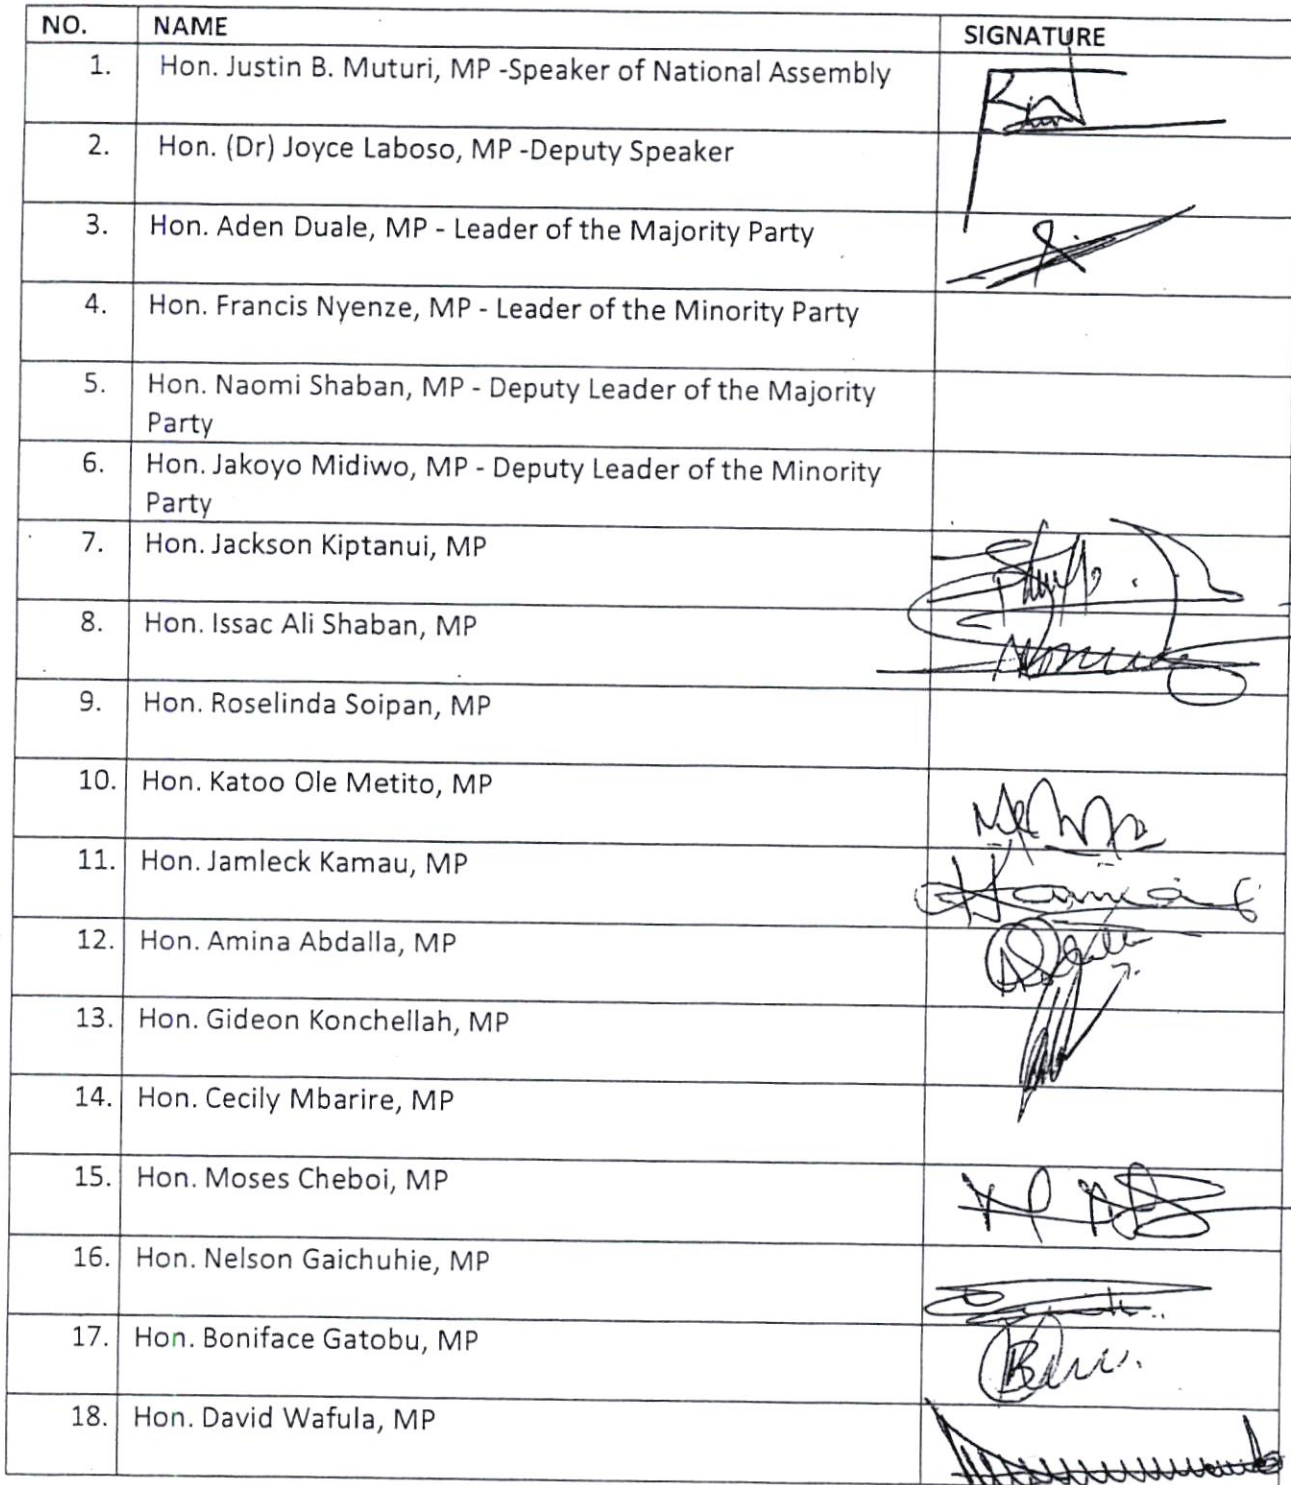 NO. NAME SIGNATURE
1. Hon. Justin B. Muturi, MP -Speaker of National Assembly
2. Hon. (Dr) Joyce Laboso, MP -Deputy Speaker
3. Hon. Aden Duale, MP - Leader of the Majority Party
4. Hon. Francis Nyenze, MP - Leader of the Minority Party
5. Hon. Naomi Shaban, MP - Deputy Leader of the Majority
Party
6. Hon. Jakoyo Midiwo, MP - Deputy Leader of the Minority
Party
7. Hon. Jackson Kiptanui, MP
8. Hon. Issac Ali Shaban, MP
9. Hon. Roselinda Soipan, MP
10. Hon. Katoo Ole Metito, MP
11. Hon. Jamleck Kamau, MP
12. Hon. Amina Abdalla, MP
13. Hon. Gideon Konchellah, MP
14. Hon. Cecily Mbarire, MP
15. Hon. Moses Cheboi, MP
16. Hon. Nelson Gaichuhie, MP
17. Hon. Boniface Gatobu, MP
18. Hon. David Wafula, MP